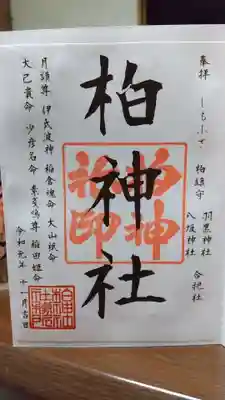 奉拝
柏鎮守
羽黒神社
八坂神社
合祀社
柏神社
柏神
社印
月読尊 伊氐波神 倉稲魂命 大山祇命
大己貴命 少彦名命 素戔嗚尊 稲田姫命
令和元年 十一月吉日